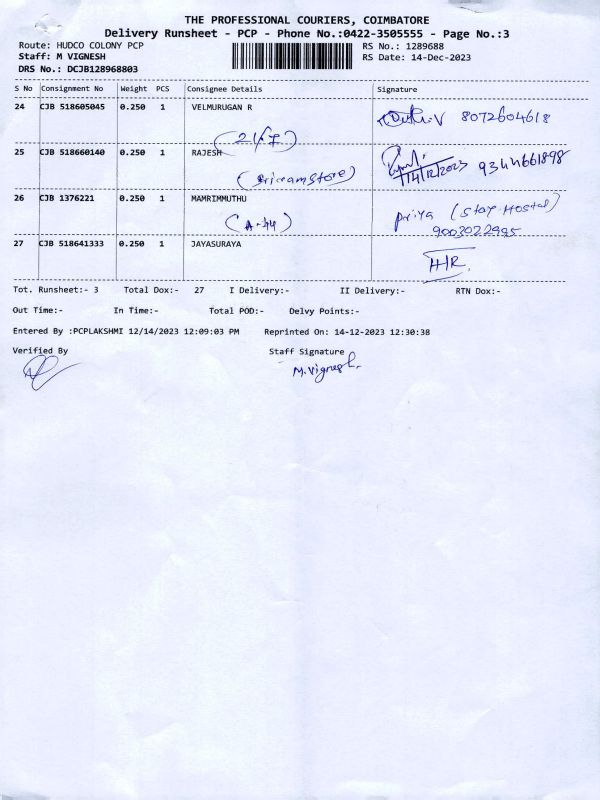 THE PROFESSIONAL COURIERS, COIMBATORE
Delivery Runsheet - PCP - Phone No.:0422-3505555 - Page No.:3
Route: HUDCO COLONY PCP RS No.: 1289688
Staff: M VIGNESH RS Date: 14-Dec-2023
DRS No.: DCJB128968803
S No Consignment No Weight PCS Consignee Details Signature
24 CJB 518605045 0.250 1 VELMURUGAN R 8072604618
25 CJB 518660140 0.250 1 RAJESH 14/12/2023 9344661898
(Sriram Store)
26 CJB 1376221 0.250 1 MAMRIMMUTHU Priya (Stay-Hostal)
(A-44) 9003022985
27 CJB 518641333 0.250 1 JAYASURAYA H/R
Tot. Runsheet:- 3 Total Dox:- 27 I Delivery:- II Delivery:- RTN Dox:-
Out Time:- In Time:- Total POD:- Delvy Points:-
Entered By :PCPLAKSHMI 12/14/2023 12:09:03 PM Reprinted On: 14-12-2023 12:30:38
Verified By Staff Signature
M.Vignesh